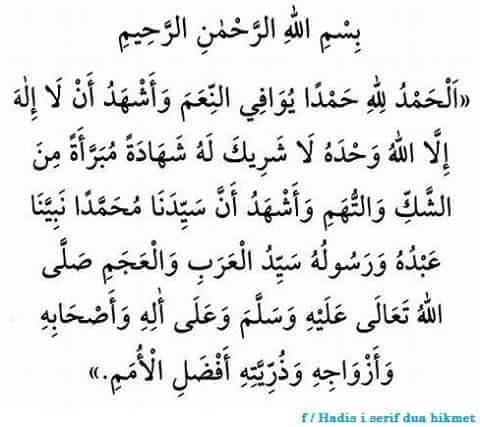 بِسْمِ اللهِ الرَّحْمٰنِ الرَّحِيمِ
«اَلْحَمْدُ لِلهِ حَمْدًا يُوَافِي النِّعَمَ وَأَشْهَدُ أَنْ لَا إِلٰهَ
إِلَّا اللهُ وَحْدَهُ لَا شَرِيكَ لَهُ شَهَادَةً مُبَرَّأَةً مِنَ
الشَّكِّ وَالتُّهَمِ وَأَشْهَدُ أَنَّ سَيِّدَنَا مُحَمَّدًا نَبِيَّنَا
عَبْدُهُ وَرَسُولُهُ سَيِّدُ الْعَرَبِ وَالْعَجَمِ صَلَّى
اللهُ تَعَالَى عَلَيْهِ وَسَلَّمَ وَعَلَى أٰلِهِ وَأَصْحَابِهِ
وَأَزْوَاجِهِ وَذُرِّيَّتِهِ أَفْضَلِ الْأُمَمِ.»
f / Hadis i serif dua hikmet